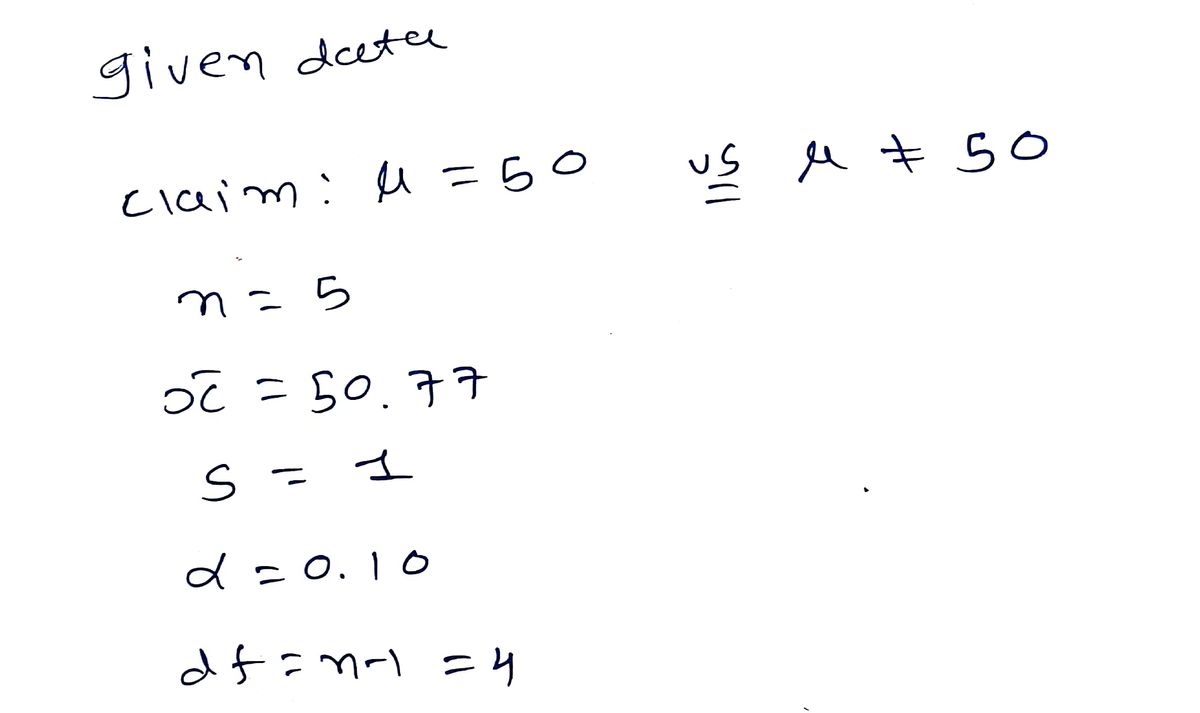 given data
claim: μ = 50 vs μ ≠ 50
n = 5
x̄ = 50.77
s = 1
α = 0.10
df = n-1 = 4